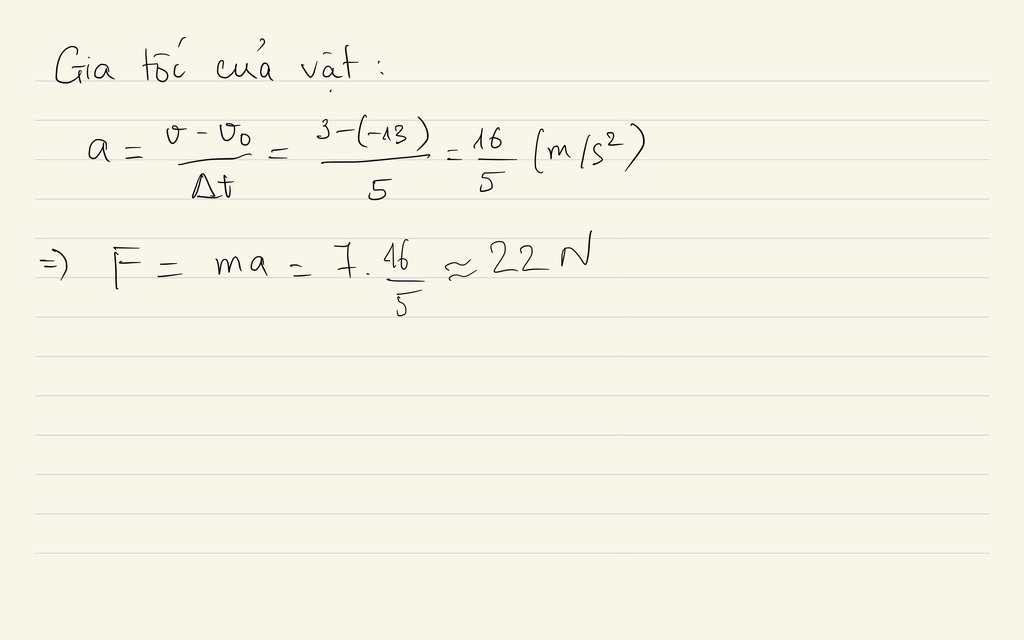 Gia tốc của vật :
a = (v - v₀)/Δt = (3-(-13))/5 = 16/5 (m/s²)
=) F = ma = 7. 16/5 ≈ 22 N